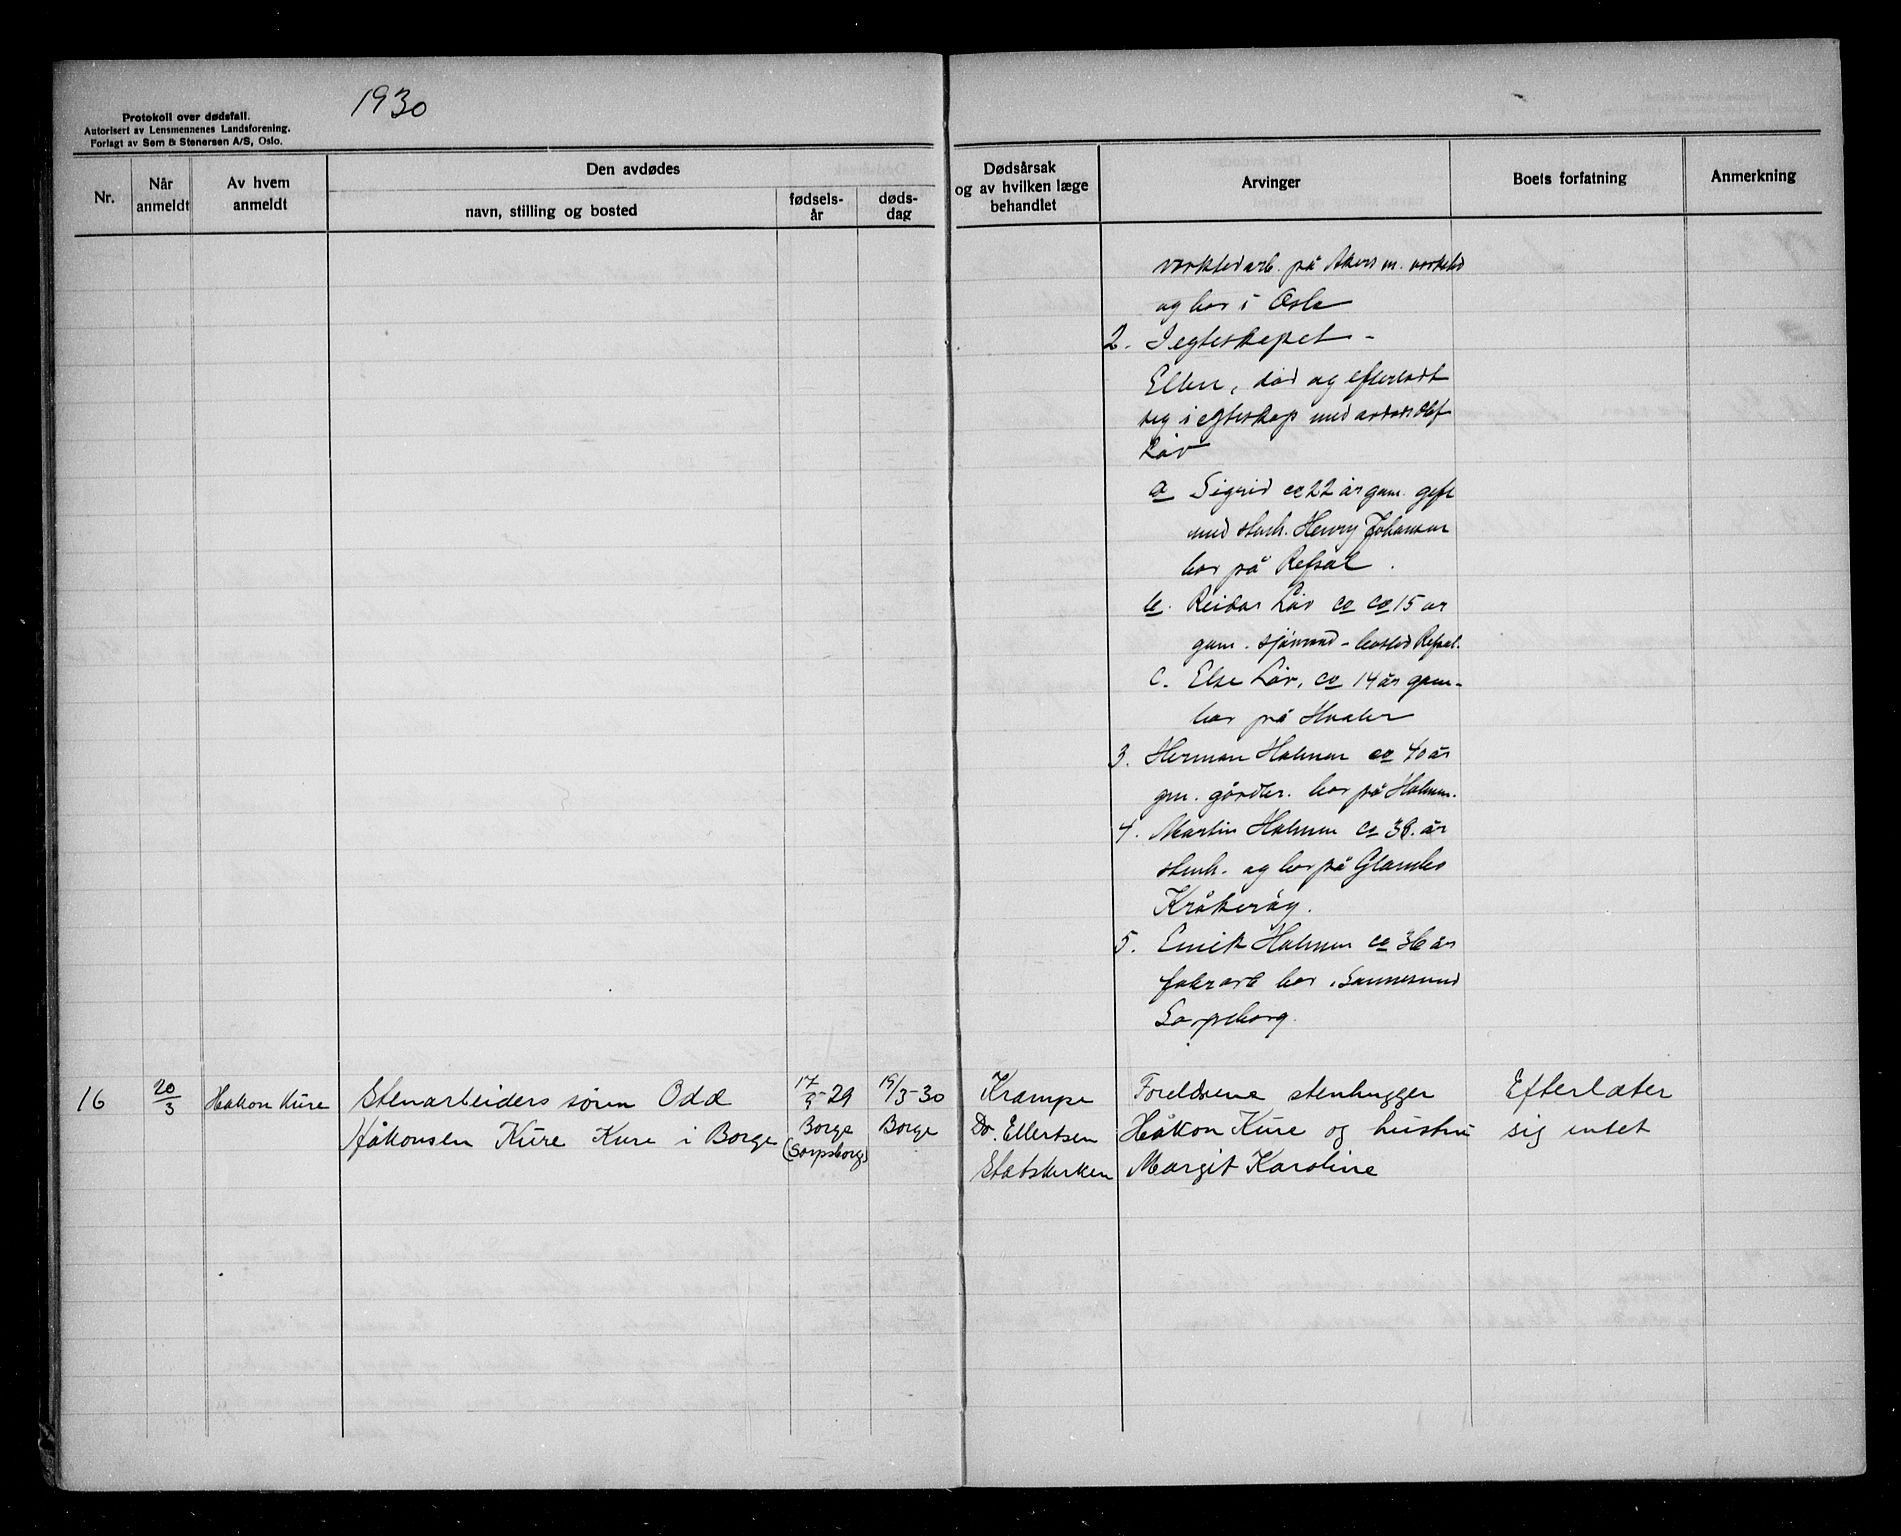 1930
Protokoll over dødsfall.
Autorisert av Lensmennenes Landsforening.
Forlagt av Sem & Stenersen A/S, Oslo.
Nr.
Når anmeldt
Av hvem anmeldt
Den avdødes
navn, stilling og bosted
fødselsår
dødsdag
Dødsårsak og av hvilken læge behandlet
Arvinger
Boets forfatning
Anmerkning
verksted arb. på Akers m. verksted
og bor i Oslo
2. I egteskapet -
Ellen, død og efterladt
seg i egteskap med Olaf
Løv
a Sigrid ca 22 år gam. gift
med stenh. Henry Johansen
bor på Refsal.
b. Reidar Løv ca ca 15 år
gam. sjømand - bosted Refsal.
c. Else Løv, ca 14 år gam-
bor på Hvaler
3. Herman Holmen ca 40 år
gm. gårdbr. bor på Holmen.
4. Martin Holmen ca 38. år
stenh. og bor på
Kråkerøy.
5. Emil Holmen ca 36 år
fabrarb bor i Sannesund
Sarpsborg.
16 20/3 Håkon Kure Stenarbeiders sönn Odd 17/9-29 19/3-30 Krampe Foreldrene stenhugger Efterlater
Håkonsen Kure Kure i Borge Borge Borge Dr. Ellertsen Håkon Kure og hustru sig intet
(Sarpsborg) Statskirken Margit Karoline